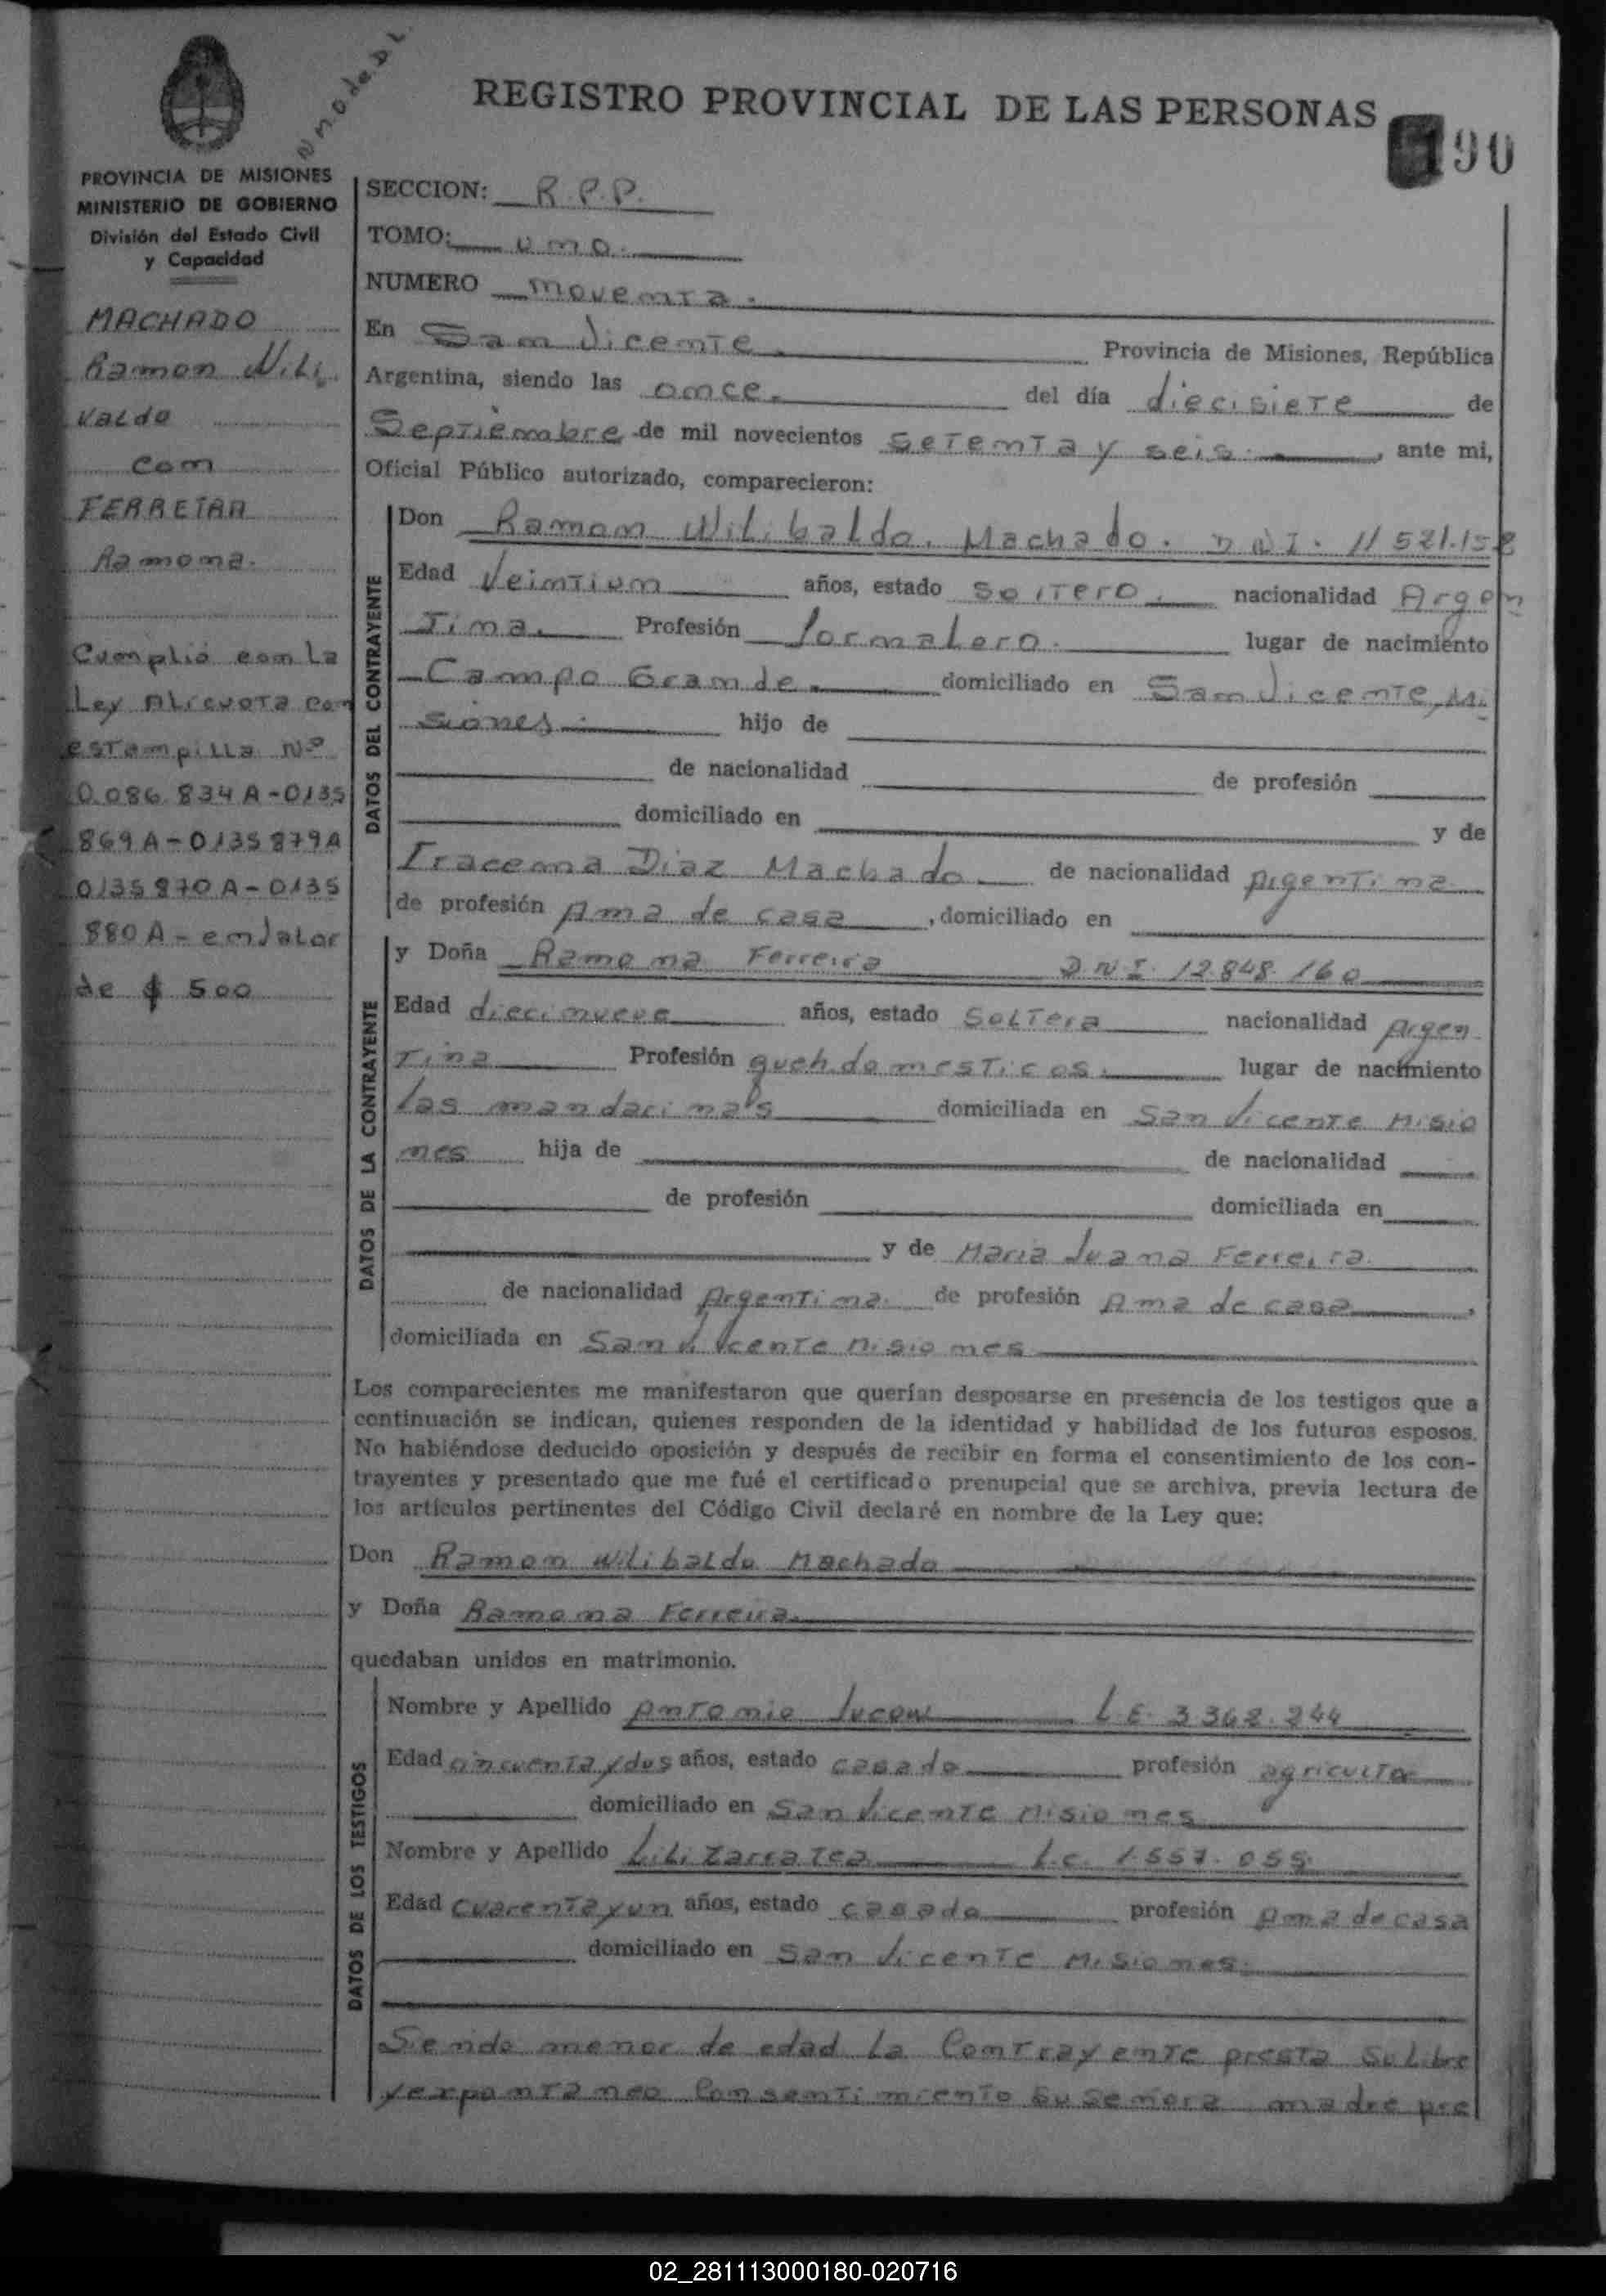 REGISTRO PROVINCIAL DE LAS PERSONAS
190
PROVINCIA DE MISIONES
MINISTERIO DE GOBIERNO
División del Estado Civil
y Capacidad
MACHADO
Ramon Wili
valdo
con
FERREIRA
Ramona.
Cumplió con la
Ley Alicuota con
estampilla Nº
0.086.834 A-0135
869 A-0135879A
0135870 A-0135
880 A- en valor
de $ 500
SECCION: R.P.P.
TOMO: uno.
NUMERO noventa.
En San Vicente. Provincia de Misiones, República
Argentina, siendo las once. del día diecisiete de
Septiembre de mil novecientos setenta y seis. , ante mi,
Oficial Público autorizado, comparecieron:
DATOS DEL CONTRAYENTE
Don Ramon Wilibaldo. Machado. DNI. 11 521.158
Edad Veintiun años, estado soltero. nacionalidad Argen
tina. Profesión Jornalero. lugar de nacimiento
Campo Grande. domiciliado en San Vicente, Mi
siones. hijo de
de nacionalidad de profesión
domiciliado en y de
Iracema Diaz Machado de nacionalidad Argentina
de profesión Ama de casa , domiciliado en
DATOS DE LA CONTRAYENTE
y Doña Ramona Ferreira D.N.I. 12.848.160
Edad diecinueve años, estado Soltera nacionalidad Argen
tina Profesión queh. domesticos. lugar de nacimiento
las mandarinas domiciliada en San Vicente Misio
nes hija de de nacionalidad
de profesión domiciliada en
y de Maria Juana Ferreira.
de nacionalidad Argentina. de profesión Ama de casa ,
domiciliada en San Vicente Misiones
Los comparecientes me manifestaron que querían desposarse en presencia de los testigos que a
continuación se indican, quienes responden de la identidad y habilidad de los futuros esposos.
No habiéndose deducido oposición y después de recibir en forma el consentimiento de los con-
trayentes y presentado que me fué el certificado prenupcial que se archiva, previa lectura de
los artículos pertinentes del Código Civil declaré en nombre de la Ley que:
Don Ramon Wilibaldo Machado
y Doña Ramona Ferreira.
quedaban unidos en matrimonio.
DATOS DE LOS TESTIGOS
Nombre y Apellido Antonio L.E. 3.362.244
Edad cincuenta y dos años, estado casado profesión agricultor
domiciliado en San Vicente Misiones
Nombre y Apellido Lili Zarratea L.C. 1.557.055
Edad cuarenta y un años, estado casada profesión Ama de casa
domiciliado en San Vicente Misiones.
Siendo menor de edad la Contrayente presta su libre
y expontaneo Consentimiento su señora madre pre
02_281113000180-020716